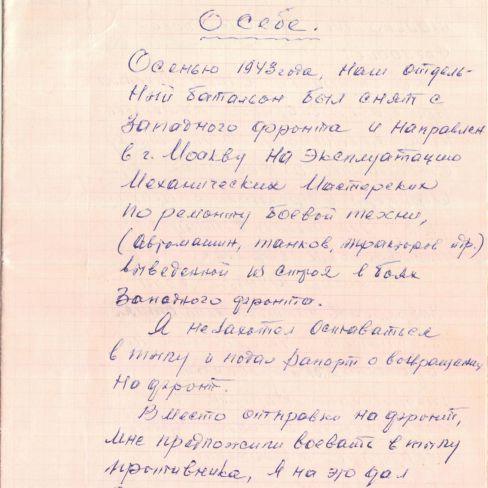 О себе.
Осенью 1943 года, наш отдель-
ный батальон был снят с
Западного фронта и направлен
в г. Москву на эксплуатацию
Механических Мастерских
по ремонту боевой техни,
(автомашин, танков, тракторов и др.)
выведенной из строя в боях
Западного фронта.
Я не захотел оставаться
в тылу и подал рапорт о возвращении
на фронт.
Вместо отправки на фронт,
мне предложили воевать в тылу
противника, я на это дал